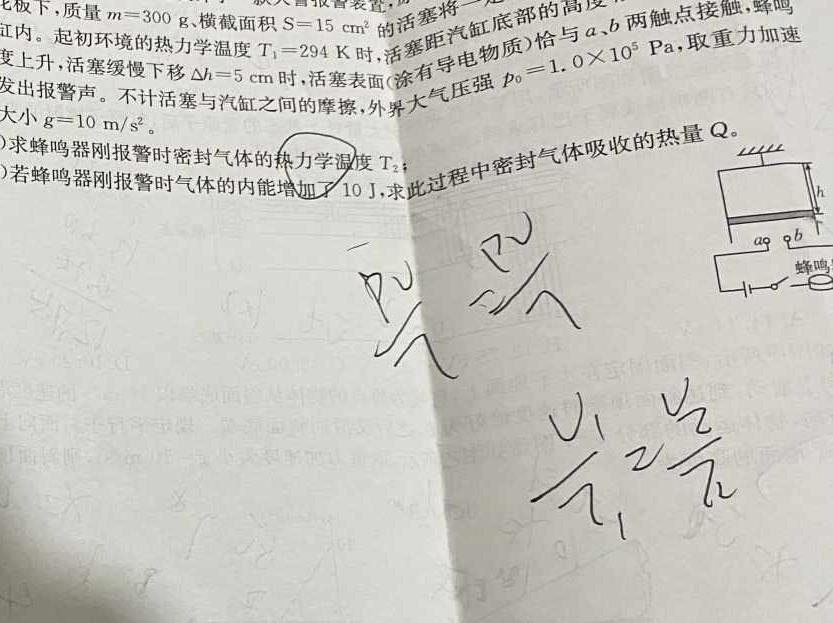 板下,质量 m=300 g、横截面积 S=15 cm² 的活塞将一
缸内。起初环境的热力学温度 T₁=294 K 时,活塞距汽缸底部的高度
度上升,活塞缓慢下移 Δh=5 cm 时,活塞表面(涂有导电物质)恰与 a、b 两触点接触,蜂鸣
发出报警声。不计活塞与汽缸之间的摩擦,外界大气压强 p₀=1.0×10⁵ Pa,取重力加速
大小 g=10 m/s²。
)求蜂鸣器刚报警时密封气体的热力学温度 T₂;
)若蜂鸣器刚报警时气体的内能增加了 10 J,求此过程中密封气体吸收的热量 Q。
h
a b
蜂鸣
PV/T = PV/T
V₁/T₁ = V₂/T₂